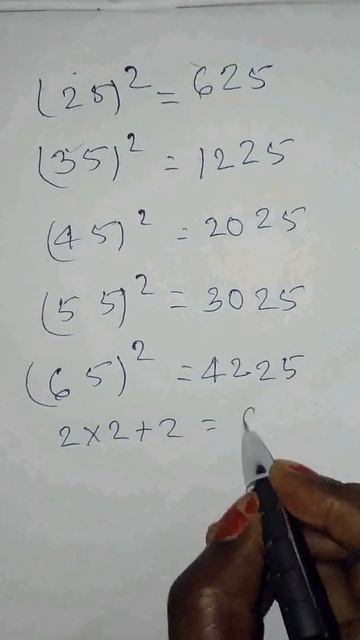 (25)² = 625
(35)² = 1225
(45)² = 2025
(55)² = 3025
(65)² = 4225
2×2+2 =